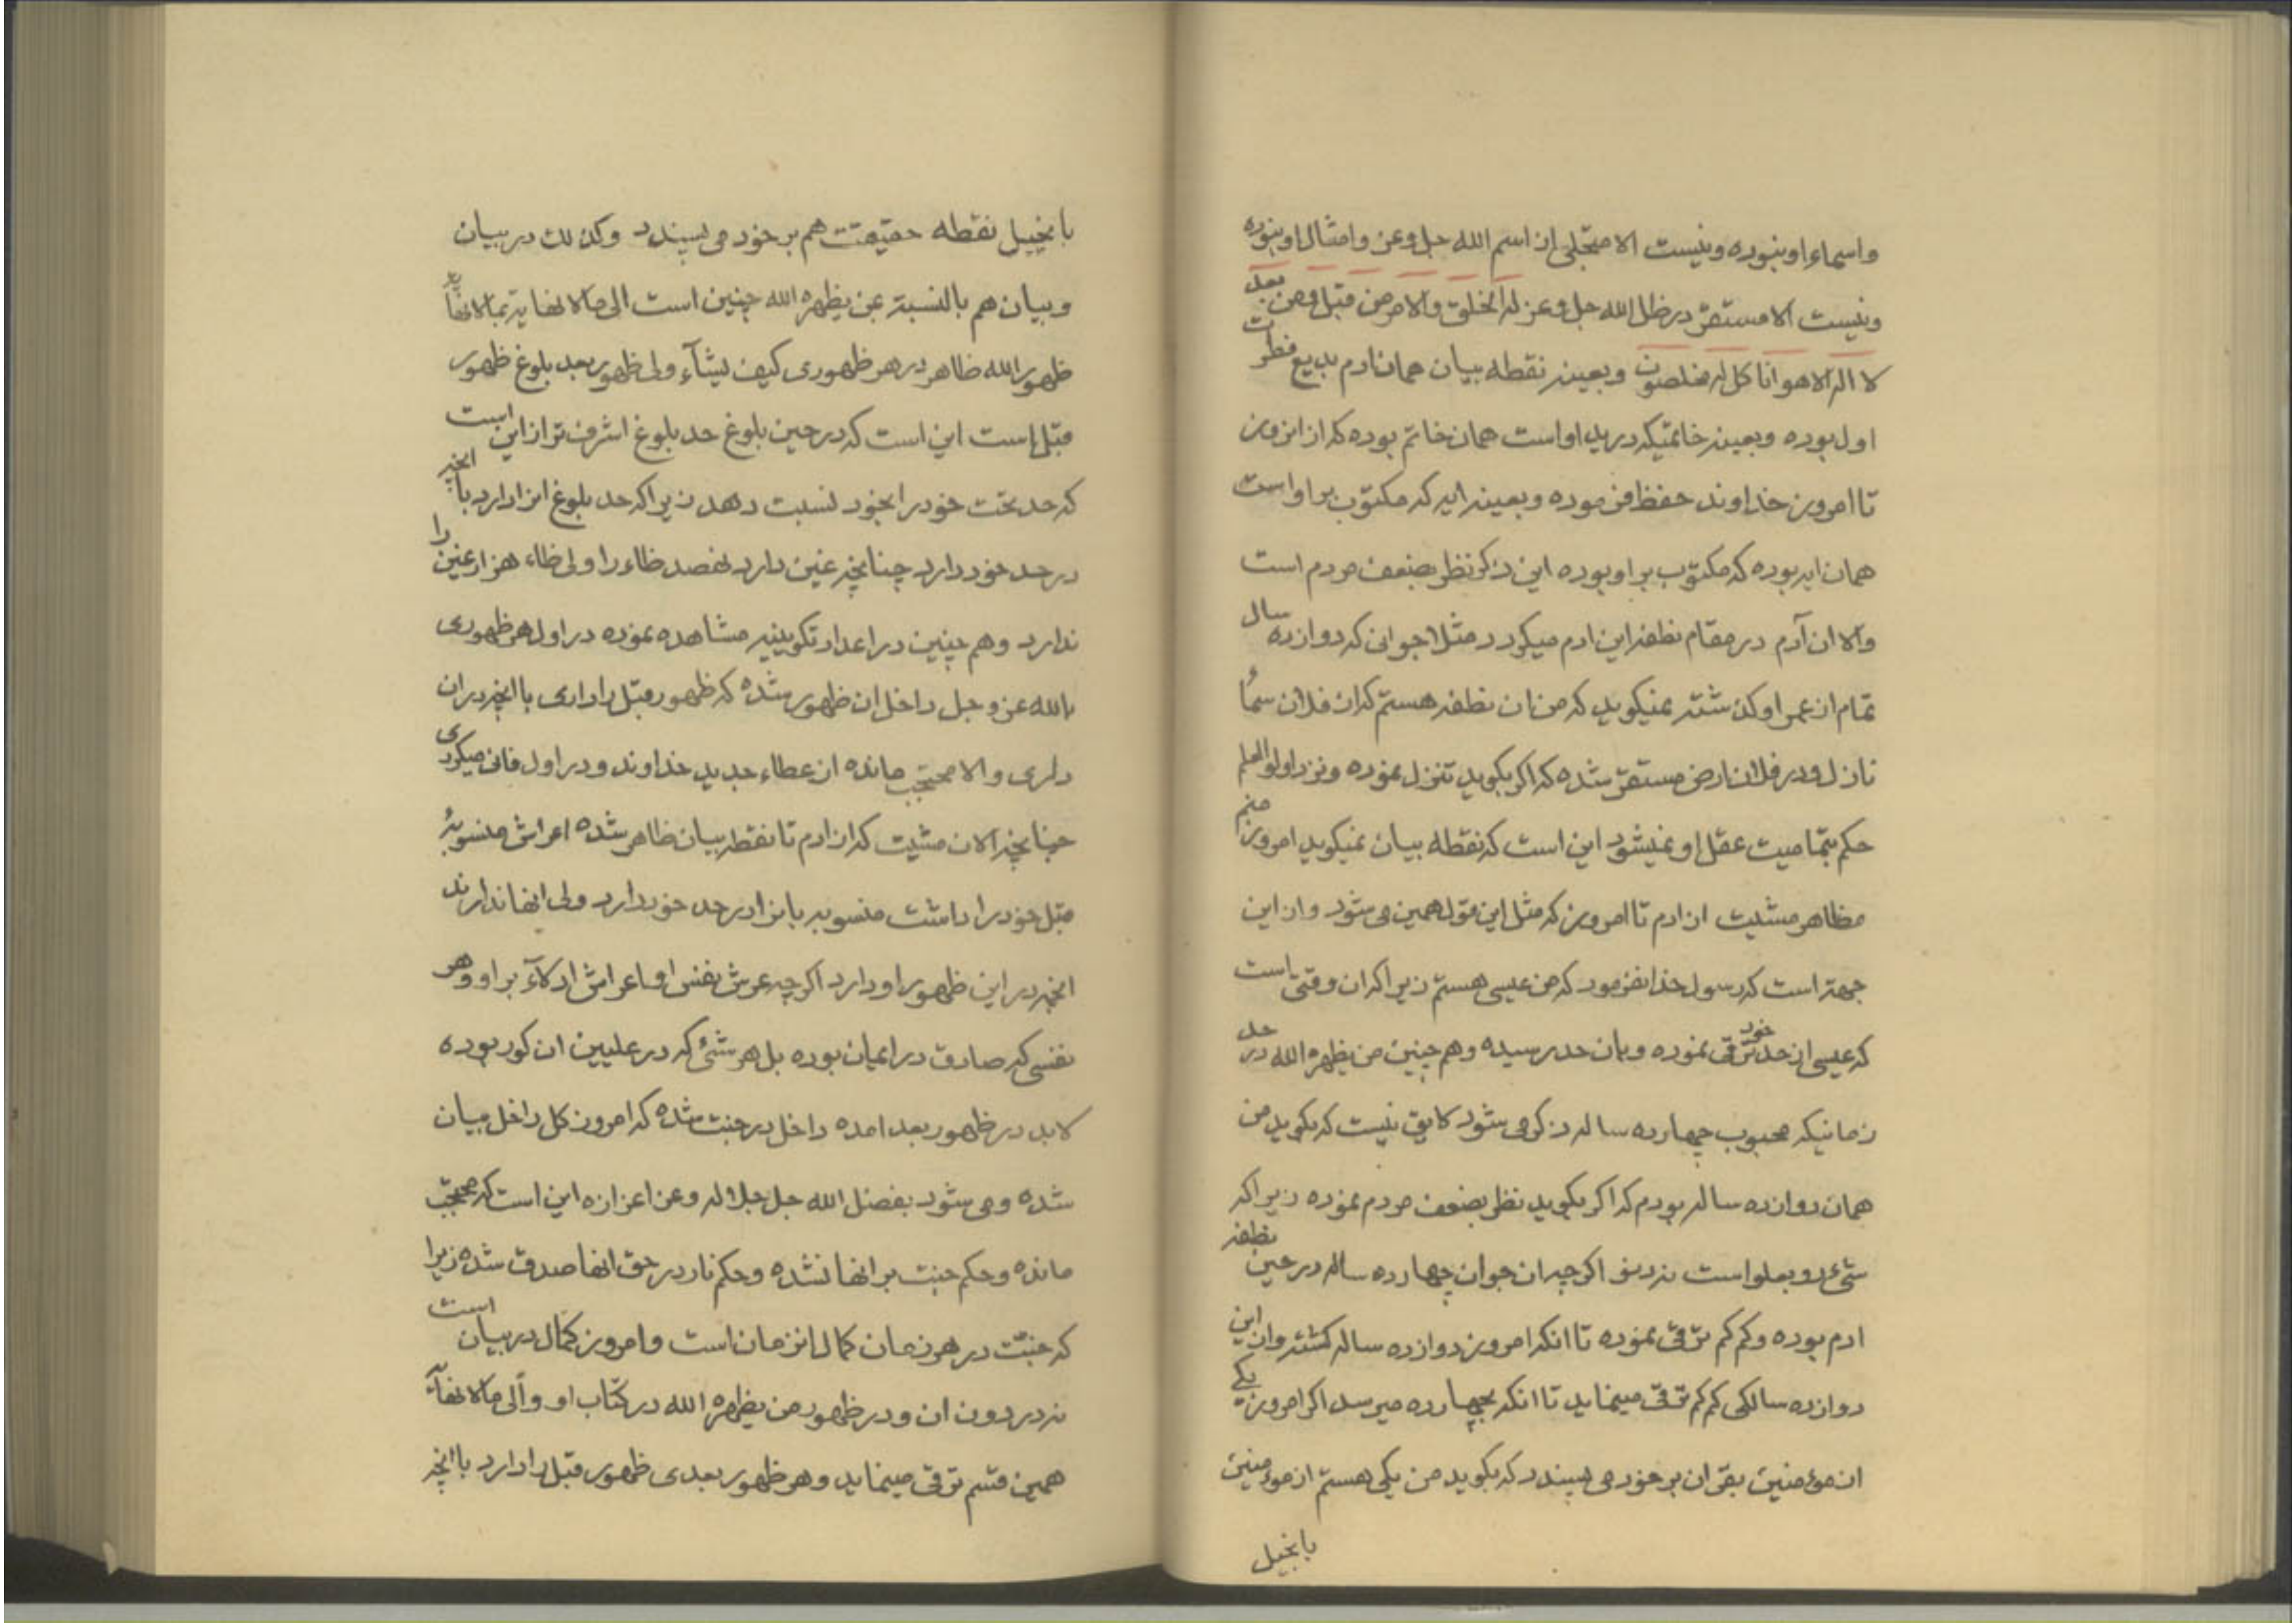 واسماء او بنوده و نیست الا متجلی از اسم الله جل و عز و امثال او بنوده
و نیست الا مستقر در ظل الله جل و عز له الخلق و الامر من قبل و من بعد
لا اله الا هو انا کل له مخلصون و بعینه نقطه بیان همان ادم بدیع فطرت
اول بوده و بعینه خاتمیکه در ید او است همان خاتم بوده که از انروز
تا امروز خداوند حفظ فرموده و بعینه ایه که مکتوب بر او است
همان ایه بوده که مکتوب بر او بوده این ذکر نظر بضعف مردم است
والا ان آدم در مقام نطفه این ادم میکردد مثلا جوانی که دوازده سال
تمام از عمر او کذشته نمیکوید که من ان نطفه هستم که از فلان سماء
نازل و در فلان ارض مستقر شده که اکر بکوید تنزل نموده و نزد اولو العلم
حکم بتمامیت عقل او نمیشود این است که نقطه بیان نمیکوید امروز منم
مظاهر مشیت از ادم تا امروز که مثل این قول همین می شود و از این
جهة است که رسول خدا نفرمود که من عیسی هستم زیرا که ان وقتی است
که عیسی از حد خود ترقی نموده و بان حد رسیده و هم چنین من یظهره الله در حد
زمانیکه محبوب چهارده ساله ذکر می شود لایق نیست که بکوید من
همان دوازده ساله بودم که اکر بکوید نظر بضعف مردم نموده زیرا که
شیء رو بعلو است نه دنو اکر چه ان جوان چهارده ساله در حین نطفه
ادم بوده و کم کم ترقی نموده تا انکه امروز دوازده ساله کشته و از این
دوازده سالکی کم کم ترقی مینماید تا انکه بچهارده میرسد اکر امروز یکی
از مؤمنین بقران بر خود می پسندد که بکوید من یکی هستم از مؤمنین
بانجیل
بانجیل نقطه حقیقت هم بر خود می پسندد و کذلک در بیان
و بیان هم بالنسبة بمن یظهره الله چنین است الی مالا نهایة بمالا نهایة
ظهور الله ظاهر در هر ظهوری کیف یشآء ولی ظهور بعد بلوغ ظهور
قبل است این است که در حین بلوغ حد بلوغ اشرف تر از این است
که حد تحت خود را بخود نسبت دهد زیرا که حد بلوغ انرا دارد با انچه
در حد خود دارد چنانچه غین دارد نهصد ظاء را ولی ظاء هزار غین را
ندارد و هم چنین در اعداد تکوینیه مشاهده نموده در اول هر ظهوری
بالله عز و جل داخل ان ظهور شده که ظهور قبل را داری با انچه در ان
داری والا محتجب مانده از عطاء جدید خداوند و در اول فانی میکردی
چنانچه الان مشیت که از ادم تا نقطه بیان ظاهر شده اعراش منسوبهٔ
قبل خود را داشت منسوبه بانرا در حد خود دارد ولی انها ندارند
انچه در این ظهور او دارد اکر چه عرش نفس او و اعراش ادلآء بر او و هر
نفسی که صادق در ایمان بوده بل هر شئ که در علیین ان کور بوده
لابد در ظهور بعد امده داخل در جنت شده که امروز کل داخل بیان
شده و می شود بفضل الله جل جلاله و عز اعزازه این است که محتجب
مانده و حکم جنت بر انها نشده و حکم نار در حق انها صدق شده زیرا
که جنت در هر زمان کمال انزمان است و امروز کمال در بیان است
نه در دون ان و در ظهور من یظهره الله در کتاب او و الی مالا نهایه
همین قسم ترقی مینماید و هر ظهور بعدی ظهور قبل را دارد با انچه